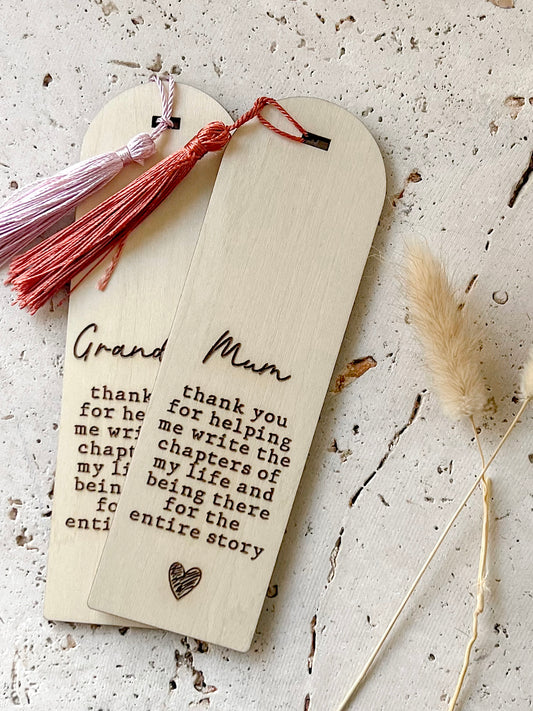 Grand
thank
for he
me wri
chapt
my li
bein
fo
entir
Mum
thank you
for helping
me write the
chapters of
my life and
being there
for the
entire story